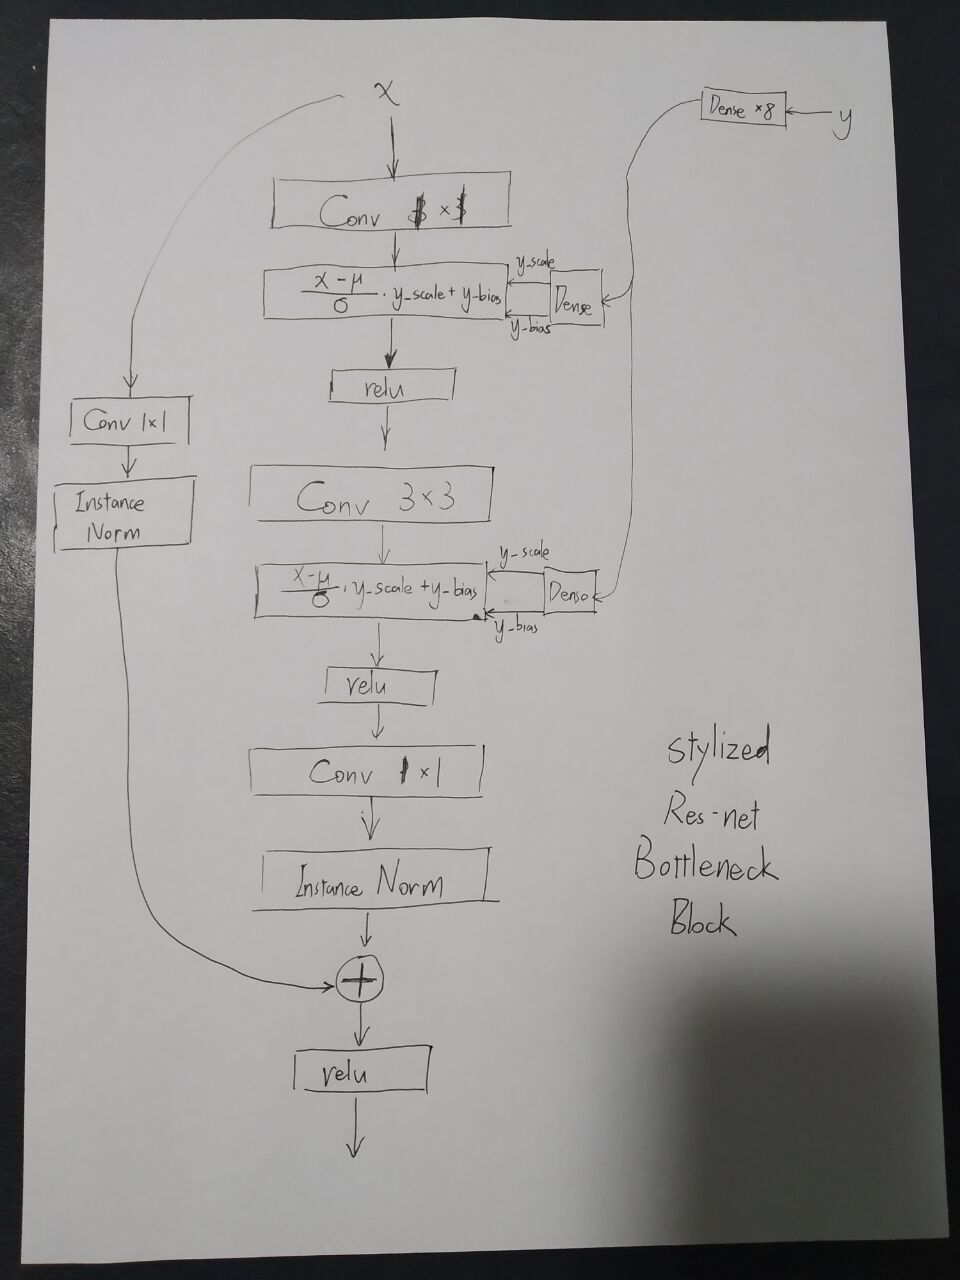 x
Dense ×8
y
Conv 1 × 1
y-scale
x - μ
σ
· y-scale + y-bias
Dense
y-bias
relu
Conv 1×1
Conv 3 × 3
Instance
Norm
y-scale
x-μ
σ
· y-scale + y-bias
Dense
y-bias
relu
Conv 1 × 1
Instance Norm
+
relu
stylized
Res-net
Bottleneck
Block